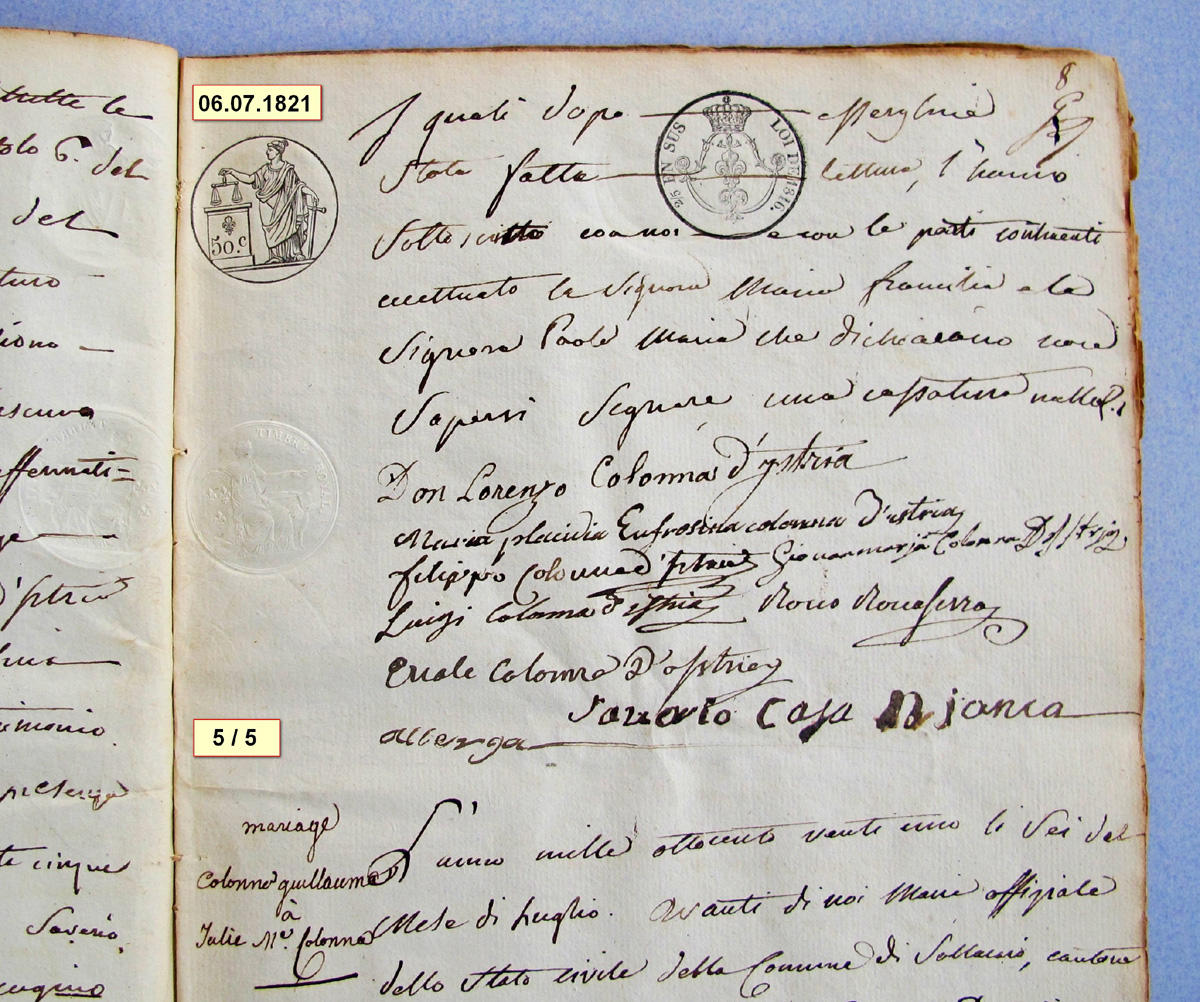 tutte le
tolo 6. del
del
turo
ziona
escuna
effermati=
d'Istria
timonio
presenza
te cinque
Saverio,
cugino
06.07.1821
8
50.c
2/5 EN SUS
LOI DE 1816.
TIMBRE ROYAL
I quali dopo essergliene
stata fatta lettura, l'hanno
sottoscritto con noi e con le parti contraenti
eccettuato la Signora Maria e la
Signora Paola Maria che dichiarano non
sapersi segnare una cassatura nulla.
Don Lorenzo Colonna d'ystria
Maria placidia Eufrosina colonna D'istria
filippo Colonna d'Istria Giovanmaria Colonna D'Istria
Luigi Colonna d'istria Rocco Roccaserra
Colonna D'osstria
Casa Bianca
alberga
5 / 5
mariage
Colonna guillaume
à
Julie Me. Colonna
L'anno mille ottocento venti uno li Sei del
Mese di Luglio. avanti di noi Maire offiziale
dello Stato civile della Comune di Sollacaro, cantone